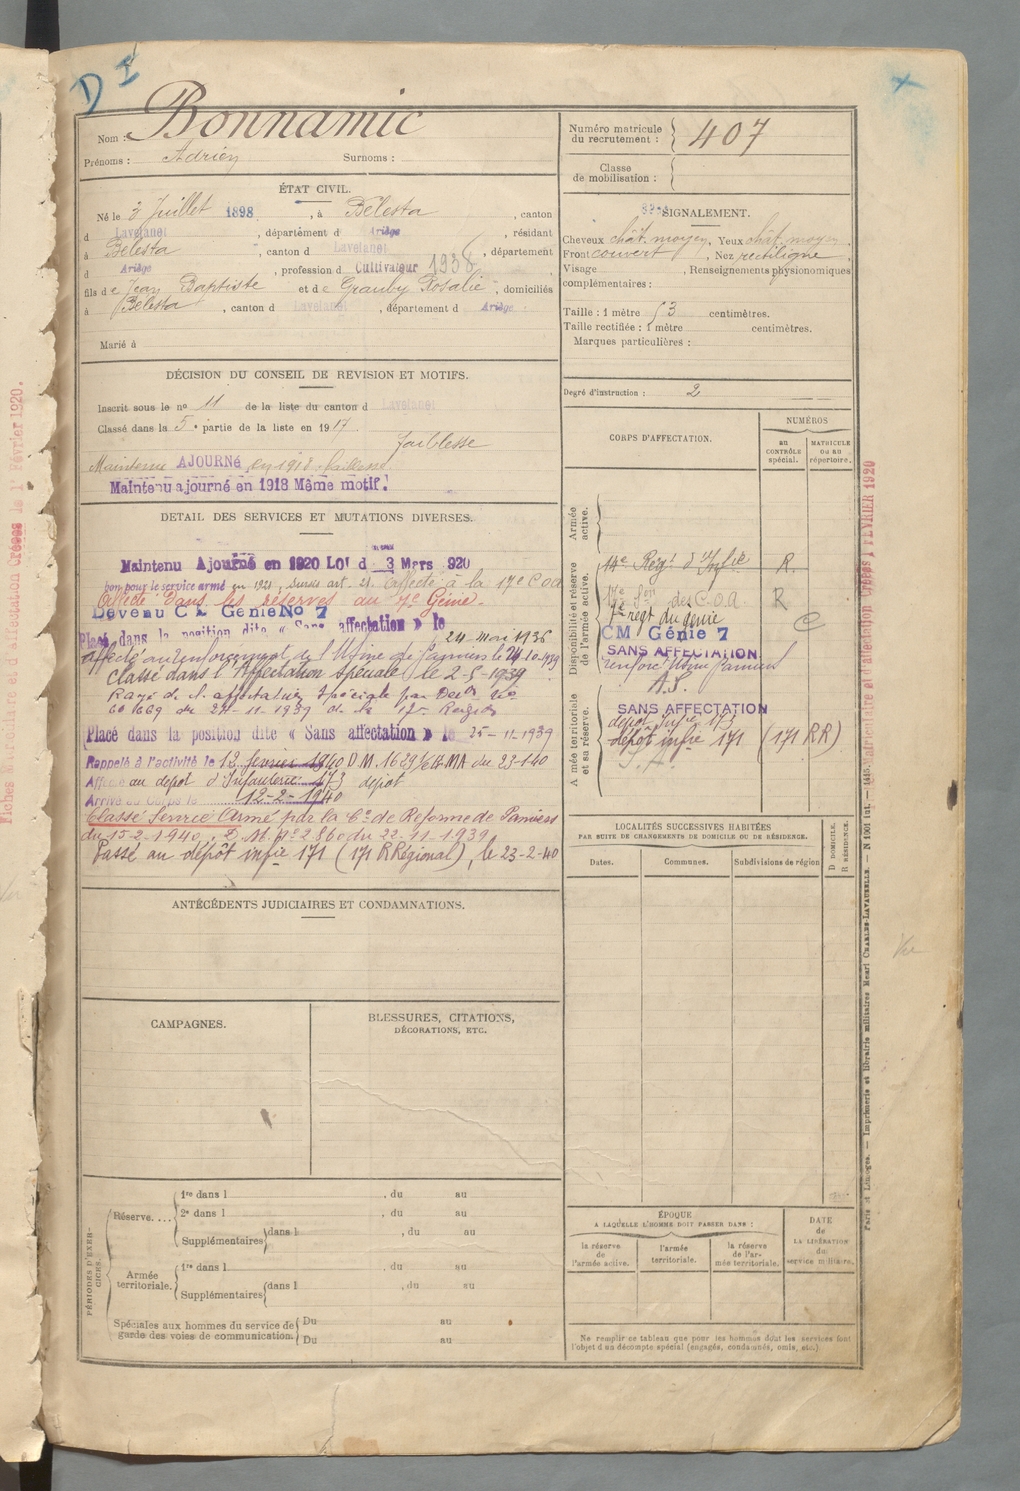 D I
Nom : Bonnamic
Prénoms : Adrien Surnoms :
Numéro matricule du recrutement : 407
Classe de mobilisation :
ÉTAT CIVIL.
Né le 3 Juillet 1898, à Bélesta, canton
d Lavelanet, département d Ariège, résidant
à Bélesta, canton d Lavelanet, département
d Ariège, profession d Cultivateur 1936
fils de Jean Baptiste et de Rosalie, domiciliés
à Bélesta, canton d Lavelanet, département d Ariège
Marié à
SIGNALEMENT.
Cheveux chât. moyen, Yeux chât. moyen,
Front couvert, Nez rectiligne,
Visage , Renseignements physionomiques
complémentaires :
Taille : 1 mètre 53 centimètres.
Taille rectifiée : 1 mètre centimètres.
Marques particulières :
Degré d'instruction : 2
DÉCISION DU CONSEIL DE REVISION ET MOTIFS.
Inscrit sous le nº 11 de la liste du canton d Lavelanet
Classé dans la 5e partie de la liste en 1917.
faiblesse
Maintenu AJOURNé en 1918 faiblesse
Maintenu ajourné en 1918 Même motif.
DETAIL DES SERVICES ET MUTATIONS DIVERSES.
Maintenu Ajourné en 1920 LOI d 3 Mars 920
bon pour le service armé en 1921, art. 21. Affecté à la 17e C.O.A
Affecté dans les réserves au 7e Génie.
Devenu C M Génie No 7
Placé dans la position dite « Sans affectation » le
24 mai 1936
Affecté au renforcement de l'Usine de Pamiers le 24-10-1939
Classé dans l'Affectation Spéciale le 2-5-1939
Rayé de l'affectation Spéciale par
du 24-11-1939 de la 17e Région
Placé dans la position dite « Sans affectation » le 25-11-1939
Rappelé à l'activité le 12 février 1940 D.M. 1629 du 23-1-40
Affecté au dépôt d'Infanterie 173 dépot
Arrivé au Corps le 12-2-1940
Classé Service Armé par la Con de Réforme de Pamiers
du 15-2-1940, D.M. nº 2860 du 22-11-1939
Passé au dépôt infie 171 (171 R Régional), le 23-2-40
CORPS D'AFFECTATION.
NUMÉROS
au CONTRÔLE spécial.
MATRICULE ou au répertoire.
Armée active.
Disponibilité et réserve de l'armée active.
14e Régt d'Infie R.
17e Son des C.O.A. R
7e régt du génie C
CM Génie 7
SANS AFFECTATION
renforc Usine Pamiers
A.S.
Armée territoriale et sa réserve.
SANS AFFECTATION
dépot Infie 173
dépôt infie 171 (171 RR)
S.A.
LOCALITÉS SUCCESSIVES HABITÉES
PAR SUITE DE CHANGEMENTS DE DOMICILE OU DE RÉSIDENCE.
Dates. Communes. Subdivisions de région
D DOMICILE. R RÉSIDENCE.
ANTÉCÉDENTS JUDICIAIRES ET CONDAMNATIONS.
CAMPAGNES.
BLESSURES, CITATIONS,
DÉCORATIONS, ETC.
PÉRIODES D'EXERCICES.
Réserve.... 1re dans l , du au
2e dans l , du au
Supplémentaires dans l , du au
Armée territoriale. 1re dans l , du au
Supplémentaires dans l , du au
Spéciales aux hommes du service de garde des voies de communication. Du au
Du au
ÉPOQUE
A LAQUELLE L'HOMME DOIT PASSER DANS :
la réserve de l'armée active.
l'armée territoriale.
la réserve de l'armée territoriale.
DATE de LA LIBÉRATION du service militaire.
Ne remplir ce tableau que pour les hommes dont les services font
l'objet d'un décompte spécial (engagés, condamnés, omis, etc.)
Paris et Limoges. — Imprimerie et librairie militaires Henri CHARLES-LAVAUZELLE. — N 1901 int. — 1415
Fiches Matriculaire et d'affectation Créées le 1er Février 1920.
Matriculaire et d'affectation Créées 1 FEVRIER 1920